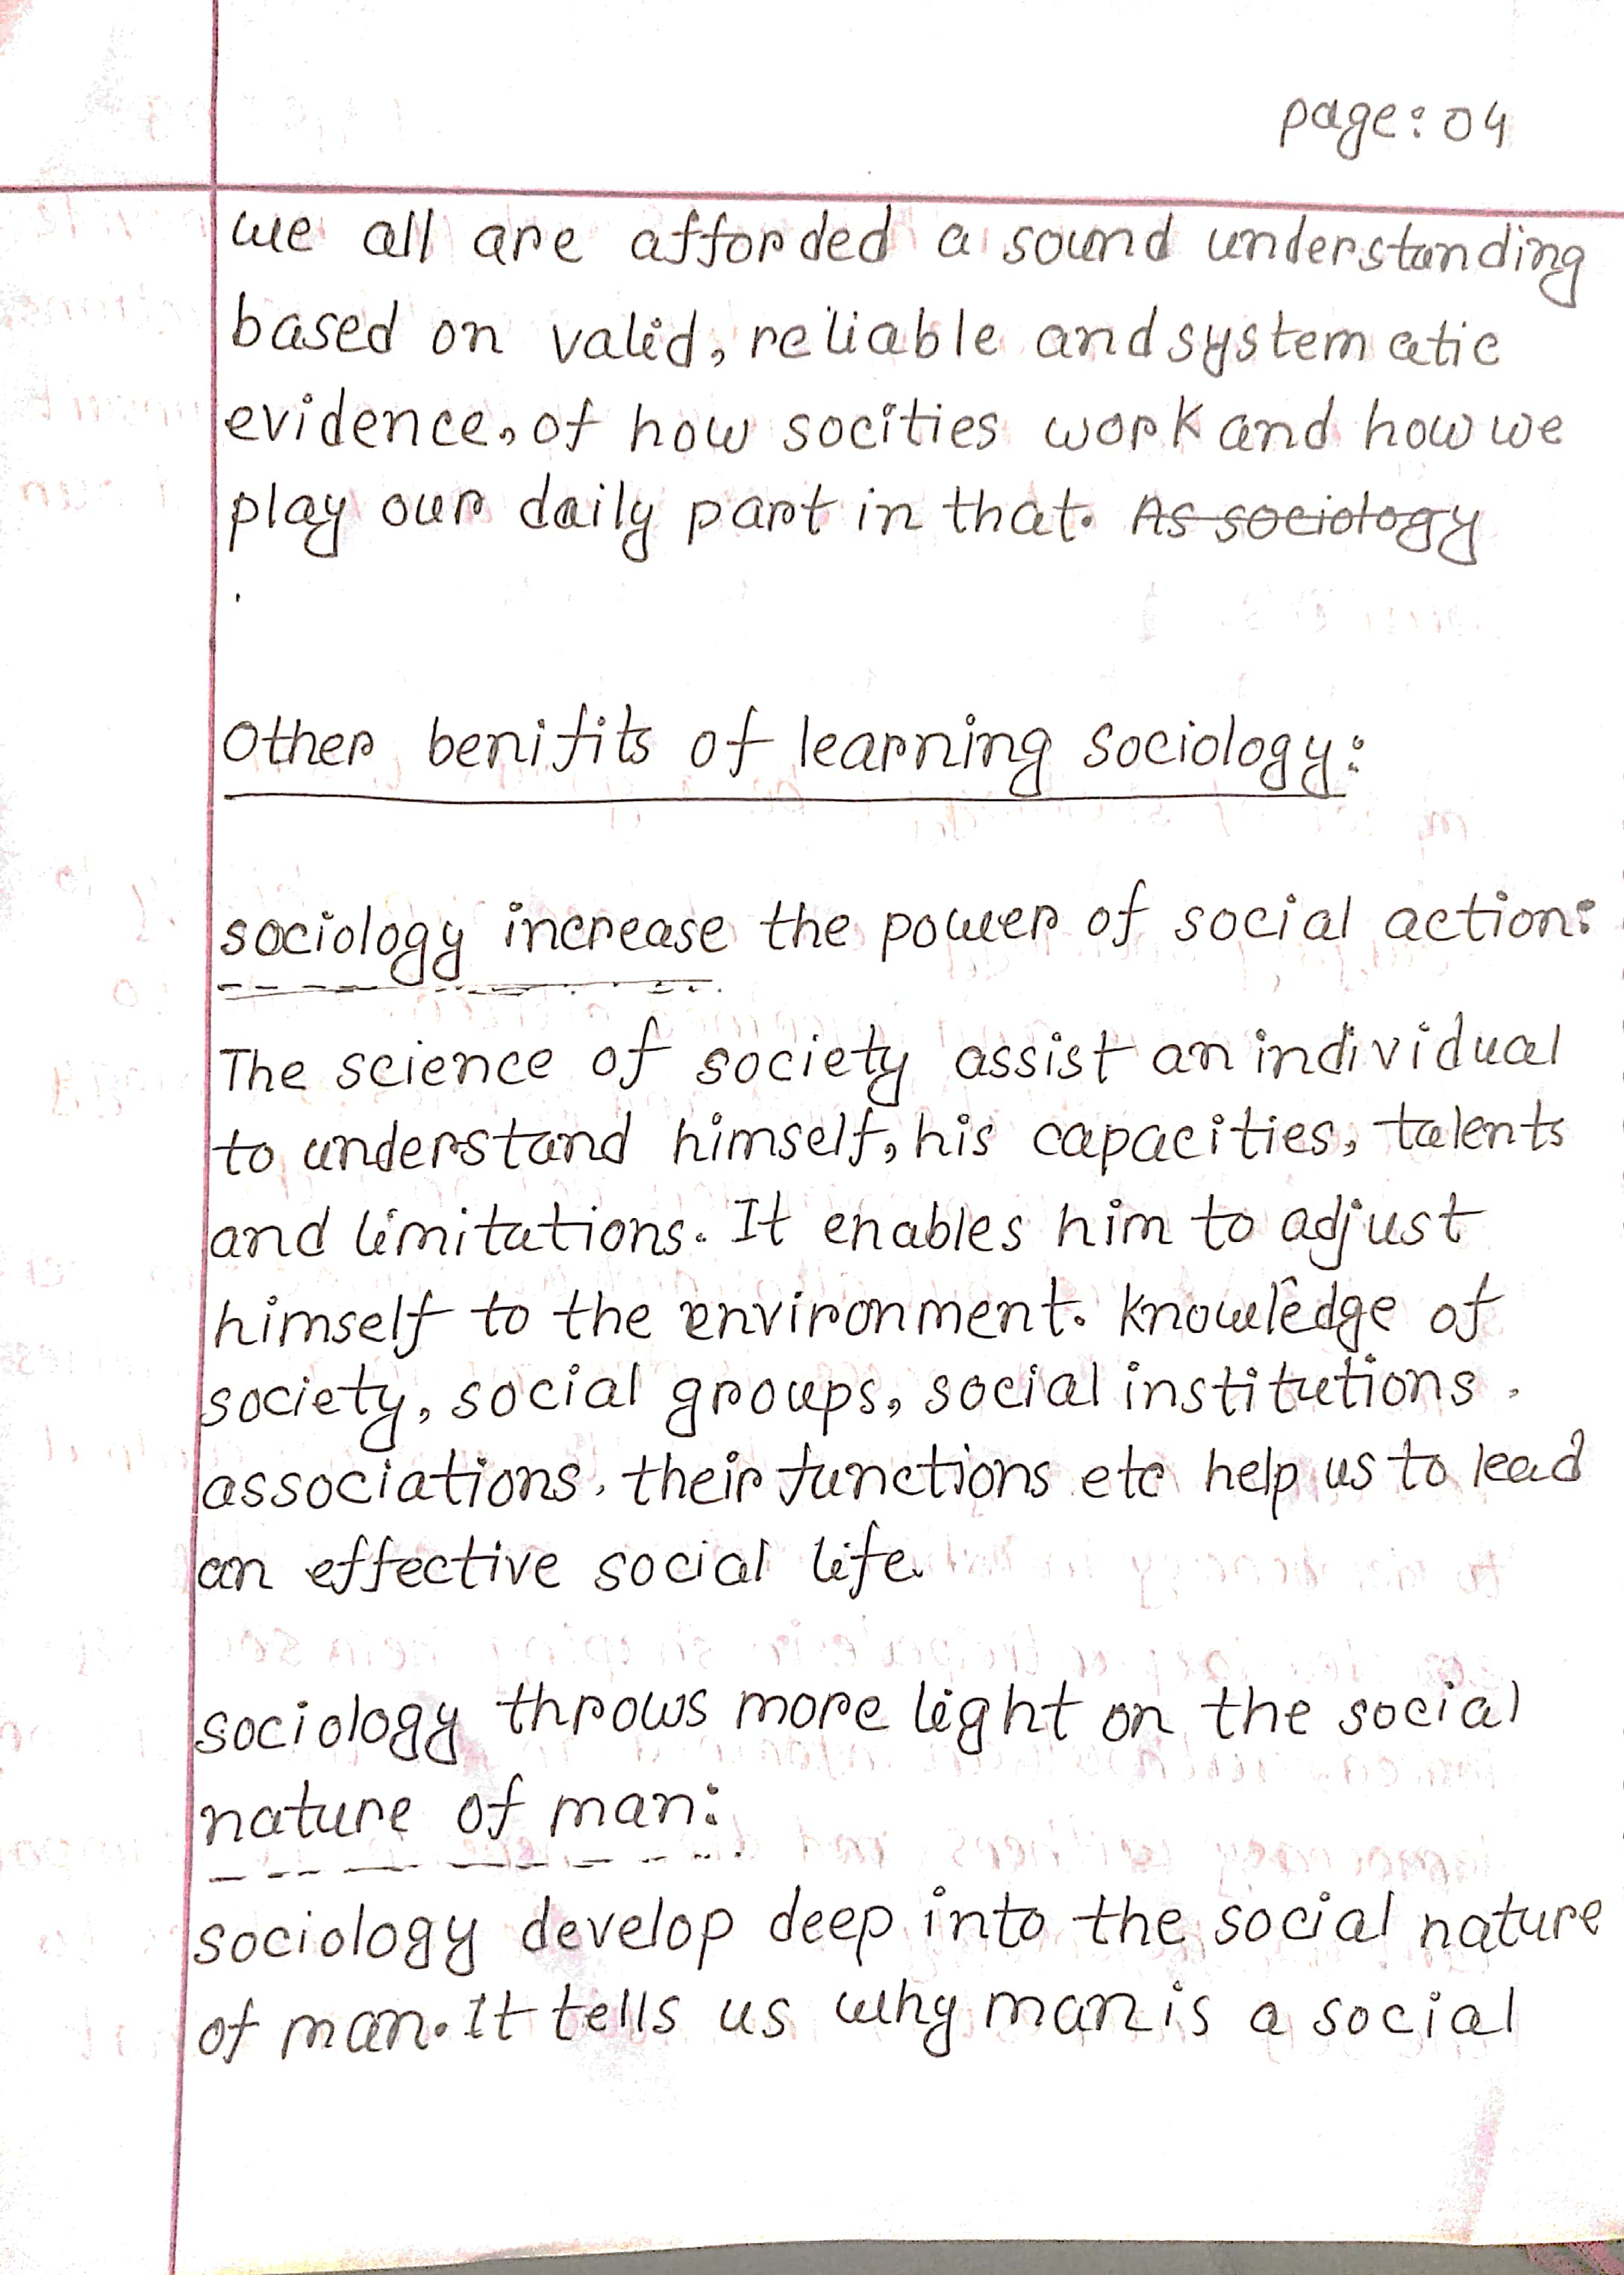 page: 04
we all are afforded a sound understanding
based on valid, reliable and systematic
evidence, of how socities work and how we
play our daily part in that. As sociology
Other benifits of learning sociology:
sociology increase the power of social action:
The science of society assist an individual
to understand himself, his capacities, talents
and limitations. It enables him to adjust
himself to the environment. knowledge of
society, social groups, social institutions,
associations, their functions etc help us to lead
an effective social life.
sociology throws more light on the social
nature of man:
sociology develop deep into the social nature
of man. It tells us why man is a social